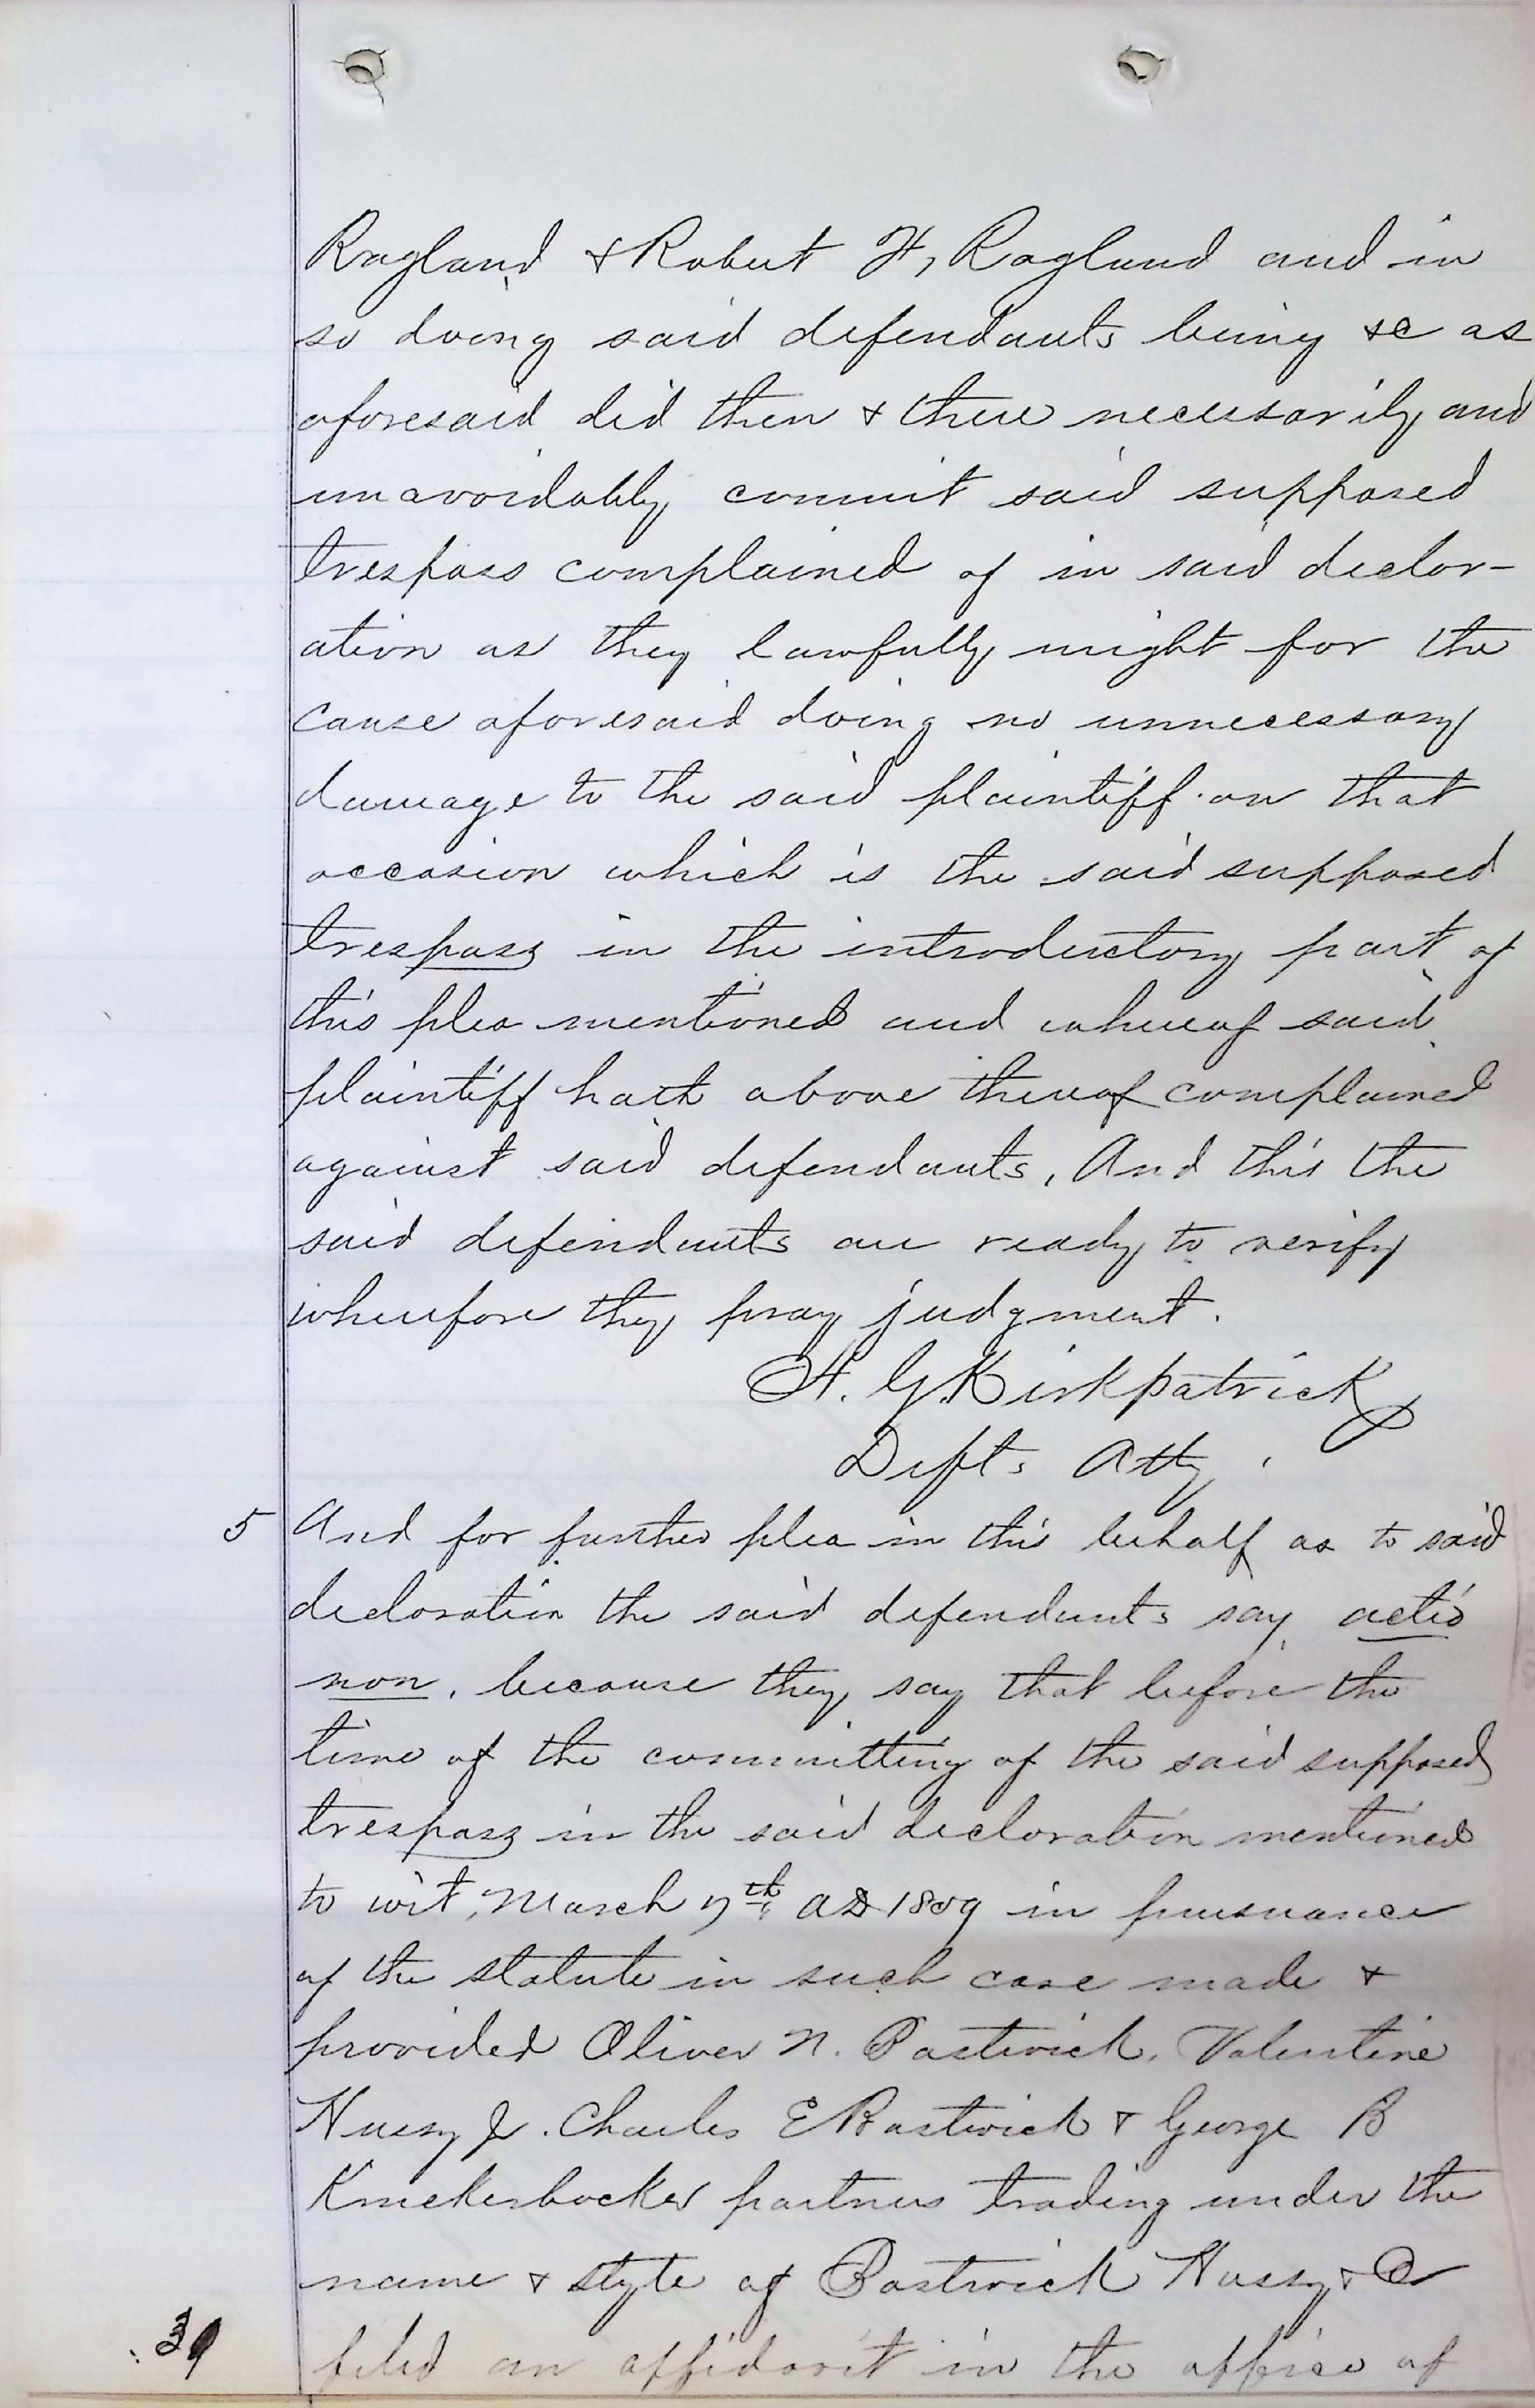 Ragland & Robert H, Ragland and in
so doing said defendants being &c as
aforesaid did then & there necessarily and
unavoidably commit said supposed
trespass complained of in said declar-
ation as they lawfully might for the
cause aforesaid doing no unnecessary
damage to the said plaintiff on that
occasion which is the said supposed
trespass in the introductory part of
this plea mentioned and whereof said
plaintiff hath above thereof complained
against said defendants, And this the
said defendants are ready to verify
wherefore they pray judgment.
A. G. Kirkpatrick
Defts Atty.
5 And for further plea in this behalf as to said
declaration the said defendants say actio
non, because they say that before the
time of the committing of the said supposed
trespass in the said declaration mentioned
to wit, March 7th AD 1859 in pursuance
of the statute in such case made &
provided Oliver N. Bostwick, Valentine
Hussy Jr. Charles E Bostwick & George B
Knickerbocker partners trading under the
name & style of Bostwick Hussy & Co
filed an affidavit in the office of
39